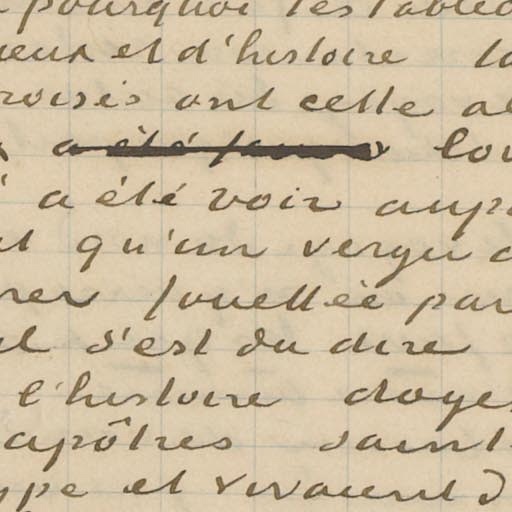 pourquoi les table
eux et d'histoire
roisés ont cette al
a été
a été voir aup
qu'un verger
rer fouettée par
s'est du dire
l'histoire
apôtres saint
ype et vivaient